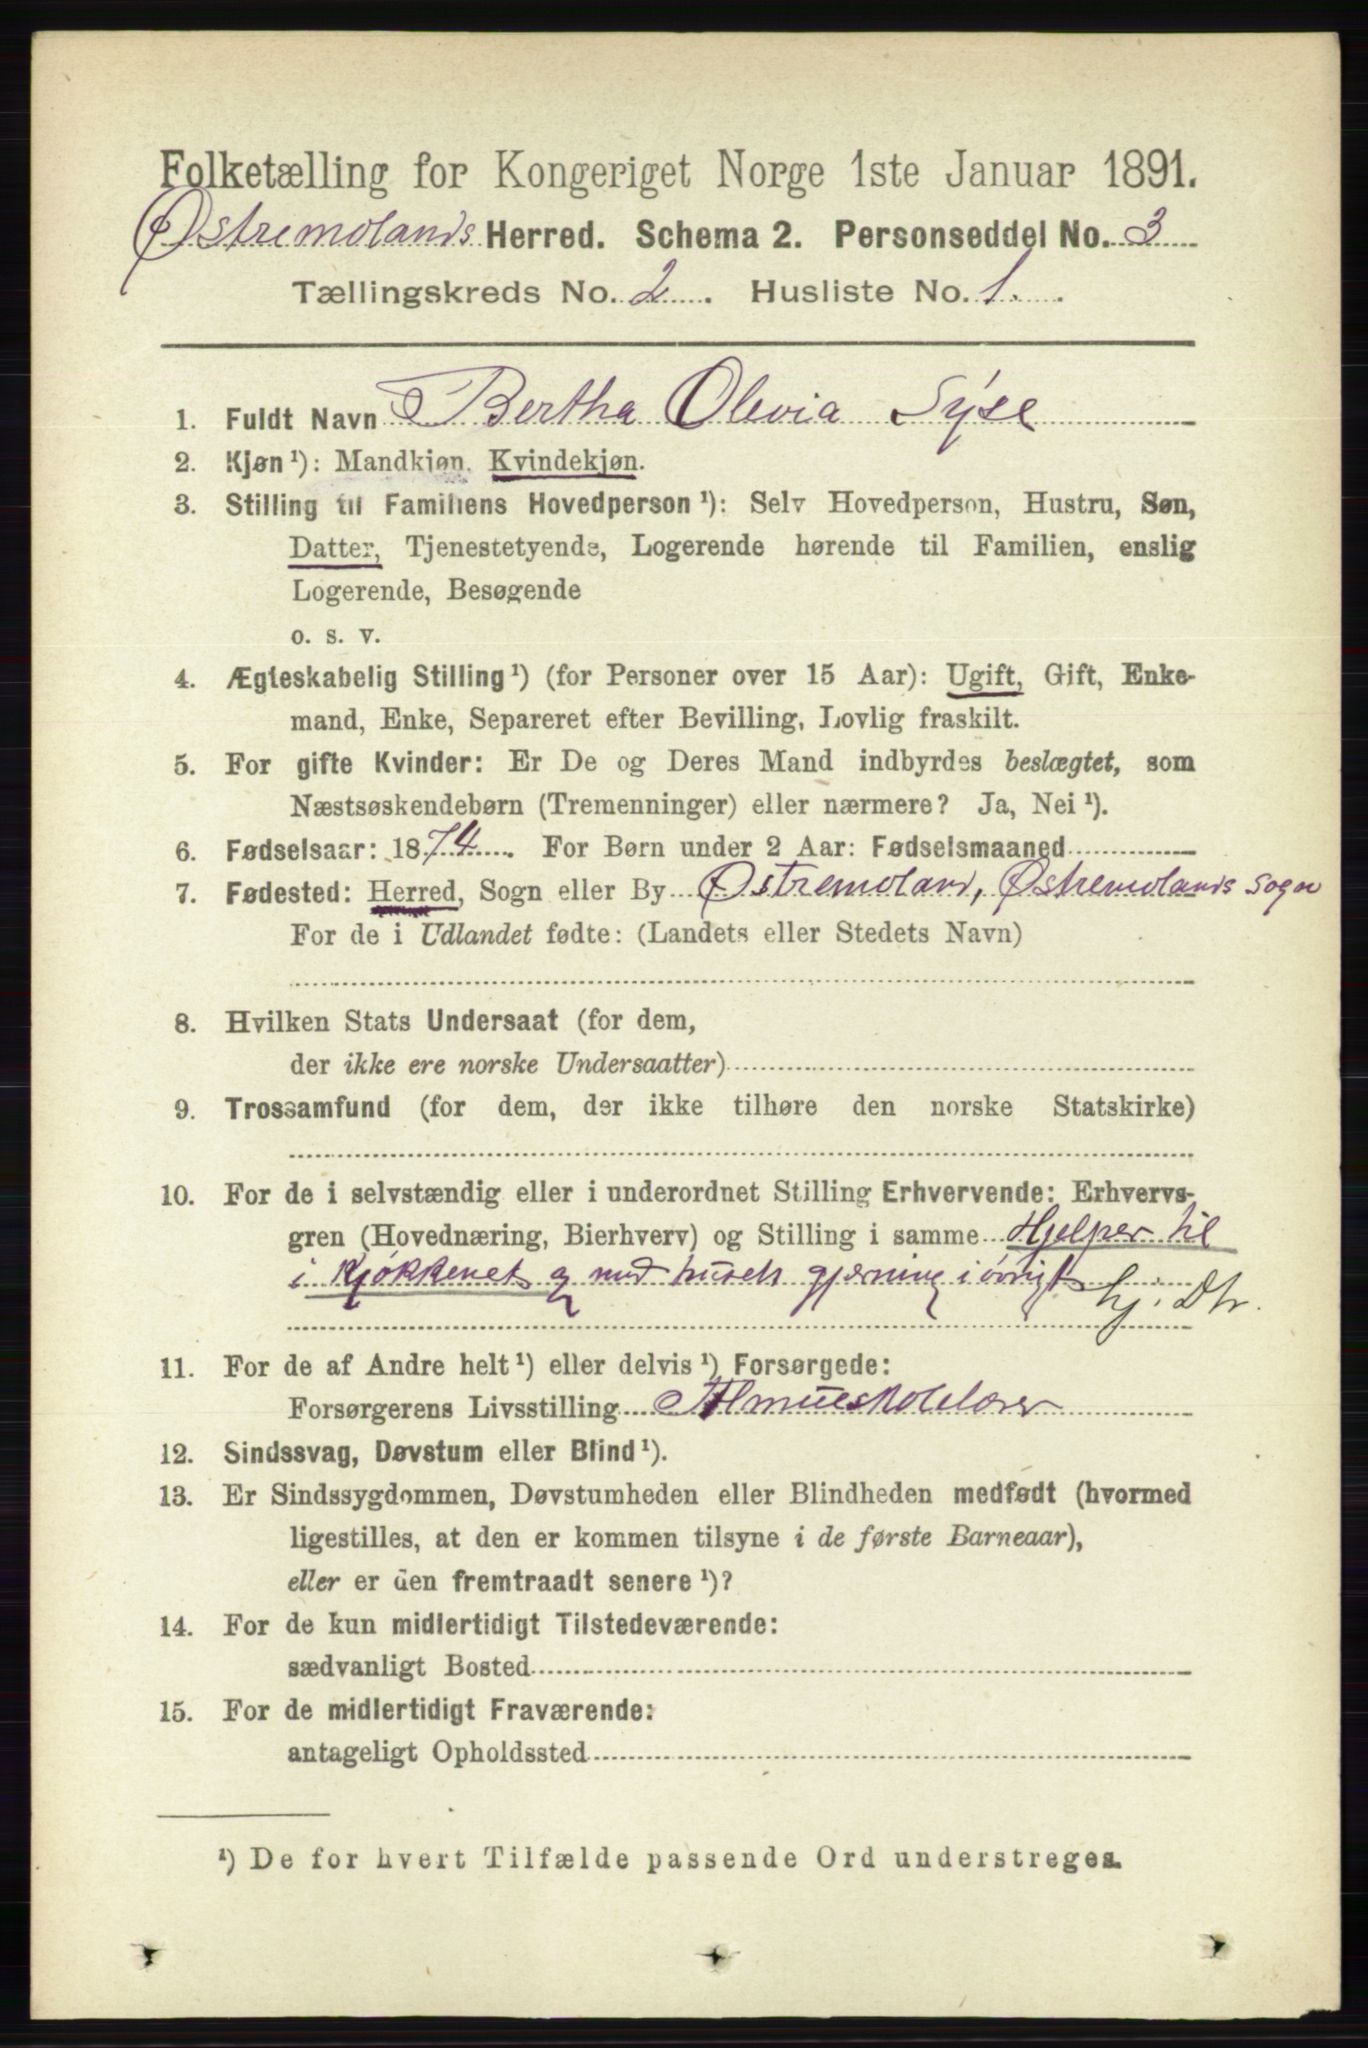 Folketælling for Kongeriget Norge 1ste Januar 1891.
Østremolands Herred. Schema 2. Personseddel No. 3
Tællingskreds No. 2. Husliste No. 1.
1. Fuldt Navn Bertha Olevia Syse
2. Kjøn ¹): Mandkjøn. Kvindekjøn.
3. Stilling til Familiens Hovedperson ¹): Selv Hovedperson, Hustru, Søn,
Datter, Tjenestetyende, Logerende hørende til Familien, enslig
Logerende, Besøgende
o. s. v.
4. Ægteskabelig Stilling ¹) (for Personer over 15 Aar): Ugift, Gift, Enke-
mand, Enke, Separeret efter Bevilling, Lovlig fraskilt.
5. For gifte Kvinder: Er De og Deres Mand indbyrdes beslægtet, som
Næstsøskendebørn (Tremenninger) eller nærmere? Ja, Nei ¹).
6. Fødselsaar: 1874. For Børn under 2 Aar: Fødselsmaaned
7. Fødested: Herred, Sogn eller By Østremoland, Østremolands sogn
For de i Udlandet fødte: (Landets eller Stedets Navn)
8. Hvilken Stats Undersaat (for dem,
der ikke ere norske Undersaatter)
9. Trossamfund (for dem, der ikke tilhøre den norske Statskirke)
10. For de i selvstændig eller i underordnet Stilling Erhvervende: Erhvervs-
gren (Hovednæring, Bierhverv) og Stilling i samme Hjelper til
i kjøkkenet og med husets gjærning i øvrigt hj. Dtr.
11. For de af Andre helt ¹) eller delvis ¹) Forsørgede:
Forsørgerens Livsstilling Almueskolelærer
12. Sindssvag, Døvstum eller Blind ¹).
13. Er Sindssygdommen, Døvstumheden eller Blindheden medfødt (hvormed
ligestilles, at den er kommen tilsyne i de første Barneaar),
eller er den fremtraadt senere ¹)?
14. For de kun midlertidigt Tilstedeværende:
sædvanligt Bosted
15. For de midlertidigt Fraværende:
antageligt Opholdssted
¹) De for hvert Tilfælde passende Ord understreges.